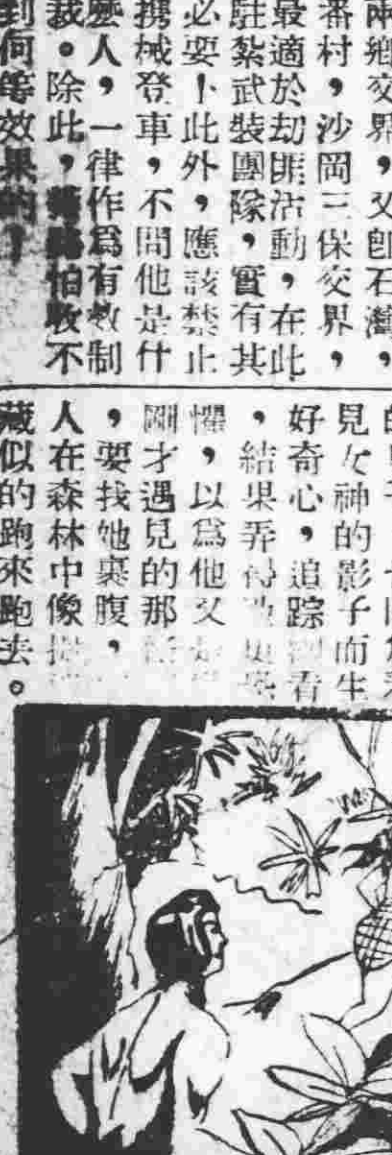 兩鄉交界，又卽石灣，
番村，沙岡三保交界，
最適於刧匪活動，在此
駐紮武裝團隊，實有其
必要！此外，應該禁止
携械登車，不問他是什
麼人，一律作爲有效制
裁。除此，怕收不
到何等效果的！
見女神的影子而生
好奇心，追踪看
，結果弄得
懼，以爲他又
剛才遇見的那
，要找她裹腹，
人在森林中像
藏似的跑來跑去。